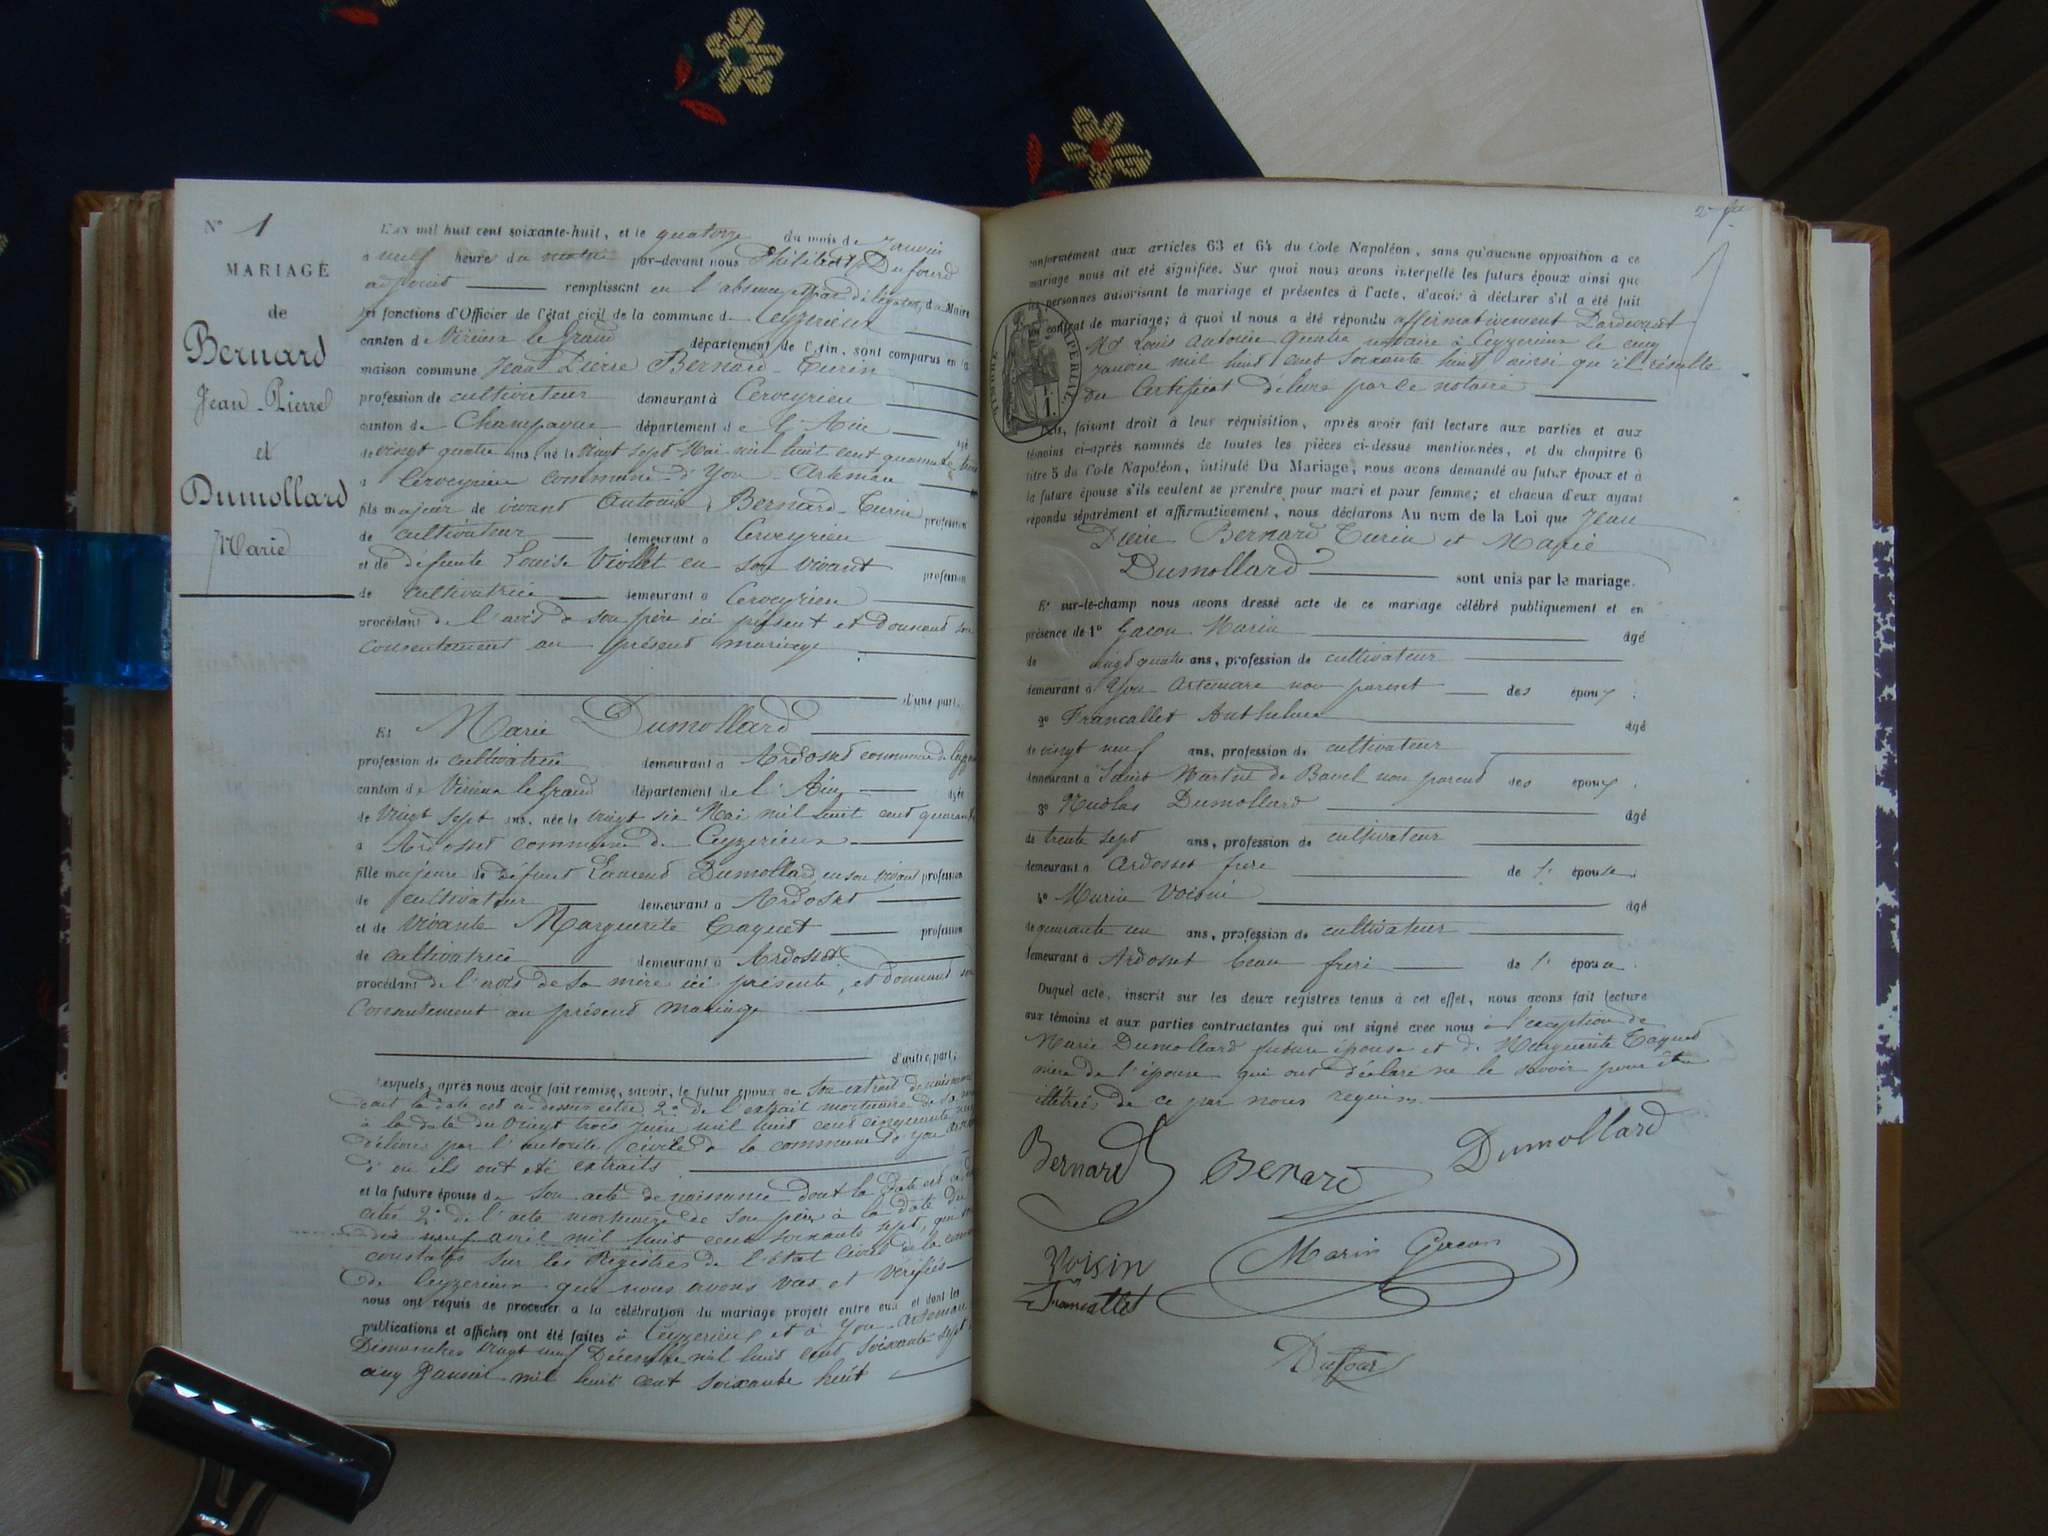 N° 1
MARIAGE
de
Bernard
Jean-Pierre
et
Dumollard
Marie
L'AN mil huit cent soixante-huit, et le quatorze du mois de Janvier
à neuf heure du matin par-devant nous Philibert Dufour
adjoint remplissant en l'absence et par délégation, du Maire
les fonctions d'Officier de l'état civil de la commune de Ceyzerieux
canton de Virieux le Grand département de l'Ain, sont comparus en la
maison commune Jean Pierre Bernard-Turin
profession de cultivateur demeurant à Cerveyrieu
canton de Champagne département de l'Ain âgé
de vingt quatre ans, né le vingt sept Mai mil huit cent quarante trois
à Cerveyrieu commune d'Yon-Artemare
fils majeur de vivant Antoine Bernard-Turin profession
de cultivateur demeurant à Cerveyrieu
et de défunte Louise Viollet en son vivant profession
de cultivatrice demeurant à Cerveyrieu
procédant de l'avis de son père ici présent et donnant son
consentement au présent mariage
d'une part.
Et Marie Dumollard
profession de cultivatrice demeurant à Ardosset commune de
canton de Virieu le Grand département de l'Ain âgée
de vingt sept ans, née le vingt six Mai mil huit cent quarante
à Ardosset commune de Ceyzerieux
fille majeure de défunt Laurent Dumollard en son vivant profession
de cultivateur demeurant à Ardosset
et de vivante Marguerite Taquet profession
de cultivatrice demeurant à Ardosset
procédant de l'avis de sa mère ici présente, et donnant son
consentement au présent mariage
d'autre part;
Lesquels, après nous avoir fait remise, savoir, le futur époux de son extrait de naissance
dont la date est ci-dessus citée 2° de l'extrait mortuaire de sa mère
à la date du vingt trois Juin mil huit cent cinquante
délivrés par l'autorité civile de la commune de Yon
d'où ils ont été extraits
et la future épouse de son acte de naissance dont la date est
citée 2° de l'acte mortuaire de son père à la date du
dix neuf avril mil huit cent soixante sept, qui
constatés sur les Registres de l'état civil de la
de Ceyzerieux que nous avons vus et vérifiés
nous ont requis de procéder à la célébration du mariage projeté entre eux et dont les
publications et affiches ont été faites à Ceyzerieux et à Yon-Artemare
Dimanches vingt neuf Décembre mil huit cent soixante-sept
cinq Janvier mil huit cent soixante huit
conformément aux articles 63 et 64 du Code Napoléon, sans qu'aucune opposition à ce
mariage nous ait été signifiée. Sur quoi nous avons interpellé les futurs époux ainsi que
les personnes autorisant le mariage et présentes à l'acte, d'avoir à déclarer s'il a été fait
un contrat de mariage; à quoi il nous a été répondu affirmativement Pardevant
Me Louis Antoine notaire à Ceyzerieux le cinq
janvier mil huit cent soixante huit ainsi qu'il résulte
du Certificat délivré par ce notaire
TIMBRE IMPÉRIAL
faisant droit à leur réquisition, après avoir fait lecture aux parties et aux
témoins ci-après nommés de toutes les pièces ci-dessus mentionnées, et du chapitre 6
titre 5 du Code Napoléon, intitulé Du Mariage, nous avons demandé au futur époux et à
la future épouse s'ils veulent se prendre pour mari et pour femme; et chacun d'eux ayant
répondu séparément et affirmativement, nous déclarons Au nom de la Loi que Jean
Pierre Bernard Turin et Marie
Dumollard sont unis par le mariage.
Et sur-le-champ nous avons dressé acte de ce mariage célébré publiquement et en
présence de 1° Gacon Marin âgé
de vingt quatre ans, profession de cultivateur
demeurant à Yon Artemare non parent des époux.
2° Francallet Anthelme âgé
de vingt neuf ans, profession de cultivateur
demeurant à Saint Martin de Bavel non parent des époux
3° Nicolas Dumollard âgé
de trente sept ans, profession de cultivateur
demeurant à Ardosset frère de l' épouse.
4° Marin Voisin âgé
de quarante un ans, profession de cultivateur
demeurant à Ardosset beau frère de l' épouse.
Duquel acte, inscrit sur les deux registres tenus à cet effet, nous avons fait lecture
aux témoins et aux parties contractantes qui ont signé avec nous à l'exception de
Marie Dumollard future épouse et de Marguerite Taquet
mère de l'épouse qui ont déclaré ne le savoir pour être
illétrées de ce par nous requises.
Bernard Benard Dumollard
Voisin Marin Gacon
Francallet
Dufour